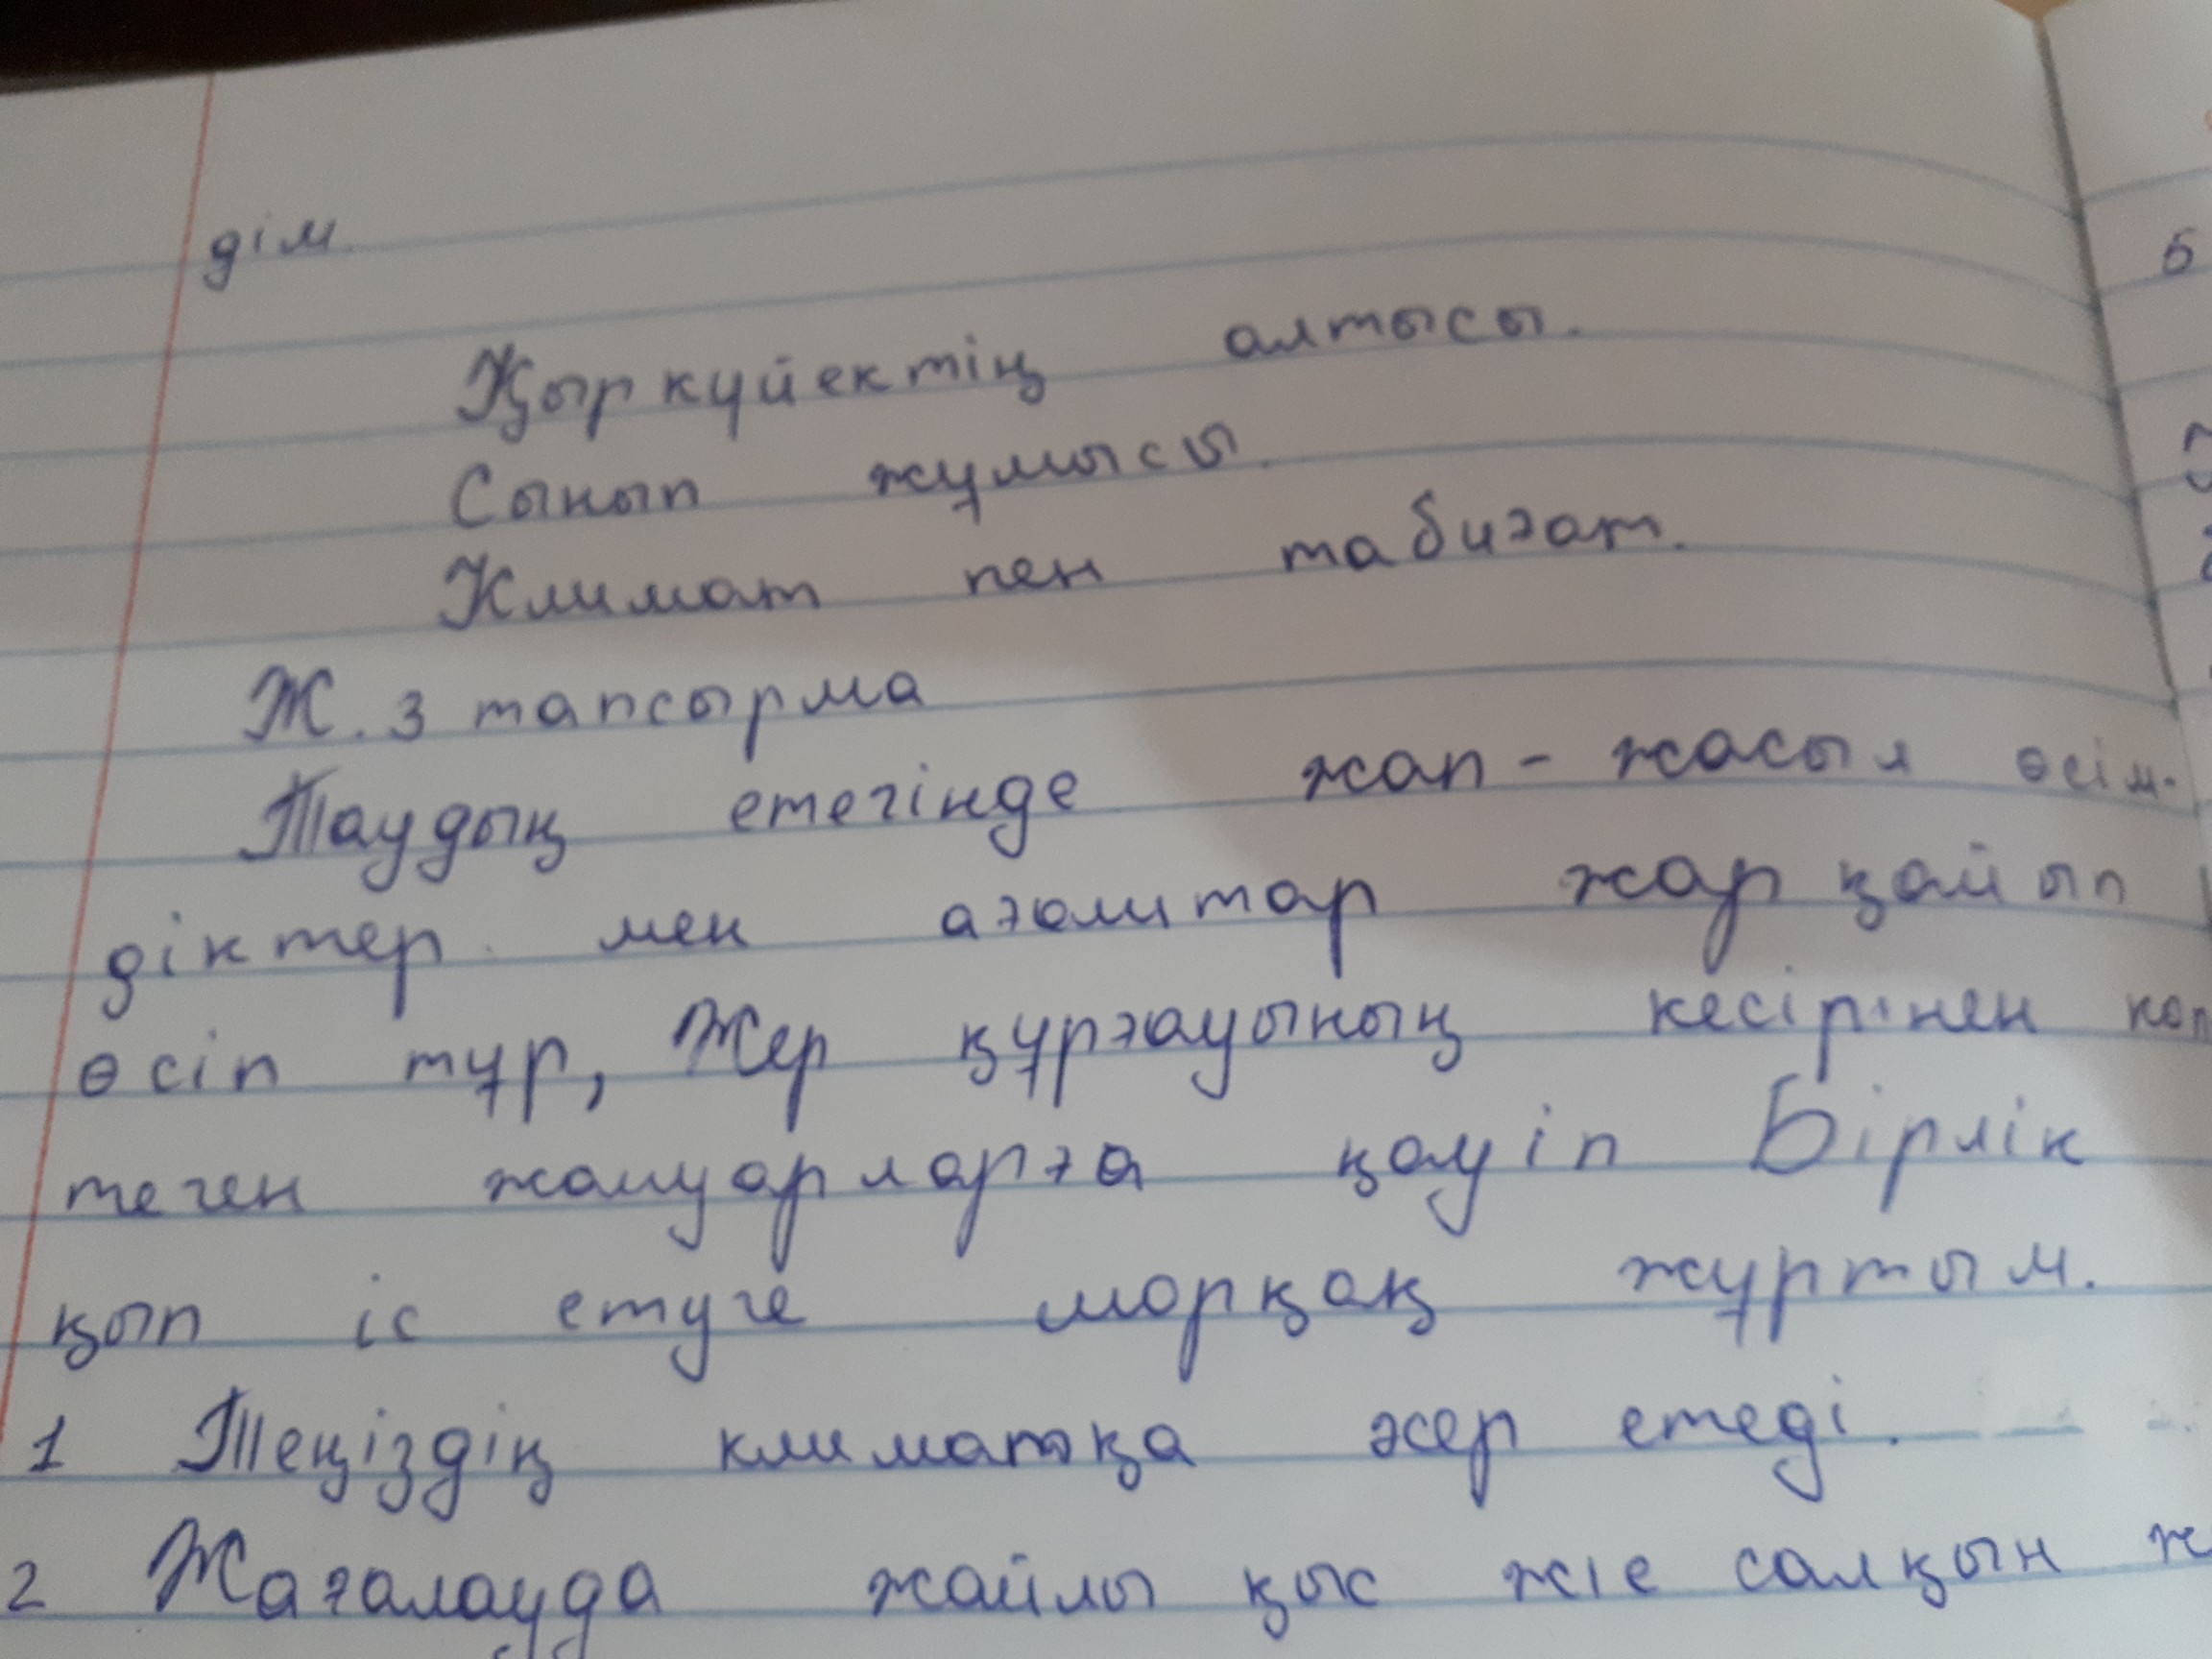 дім.
Қыркүйектің алтысы.
Сынып жұмысы.
Климат пен табиғат.
Ж. 3 тапсырма
Таудың етегінде жап-жасыл өсім-
діктер мен ағаштар жарқайып
өсіп тұр, Жер құрғауының кесірінен көп
теген жануарларға қауіп Бірлік
қып іс етуге шорқақ жұртым.
1 Теңіздің климатқа әсер етеді.
2 Жағалауда жайлы қыс жіе салқын